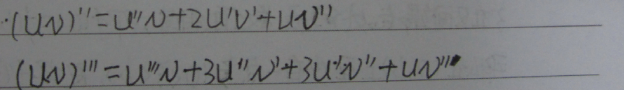 (uv)''=u''v+2u'v'+uv''
(uv)'''=u'''v+3u''v'+3u'v''+uv'''